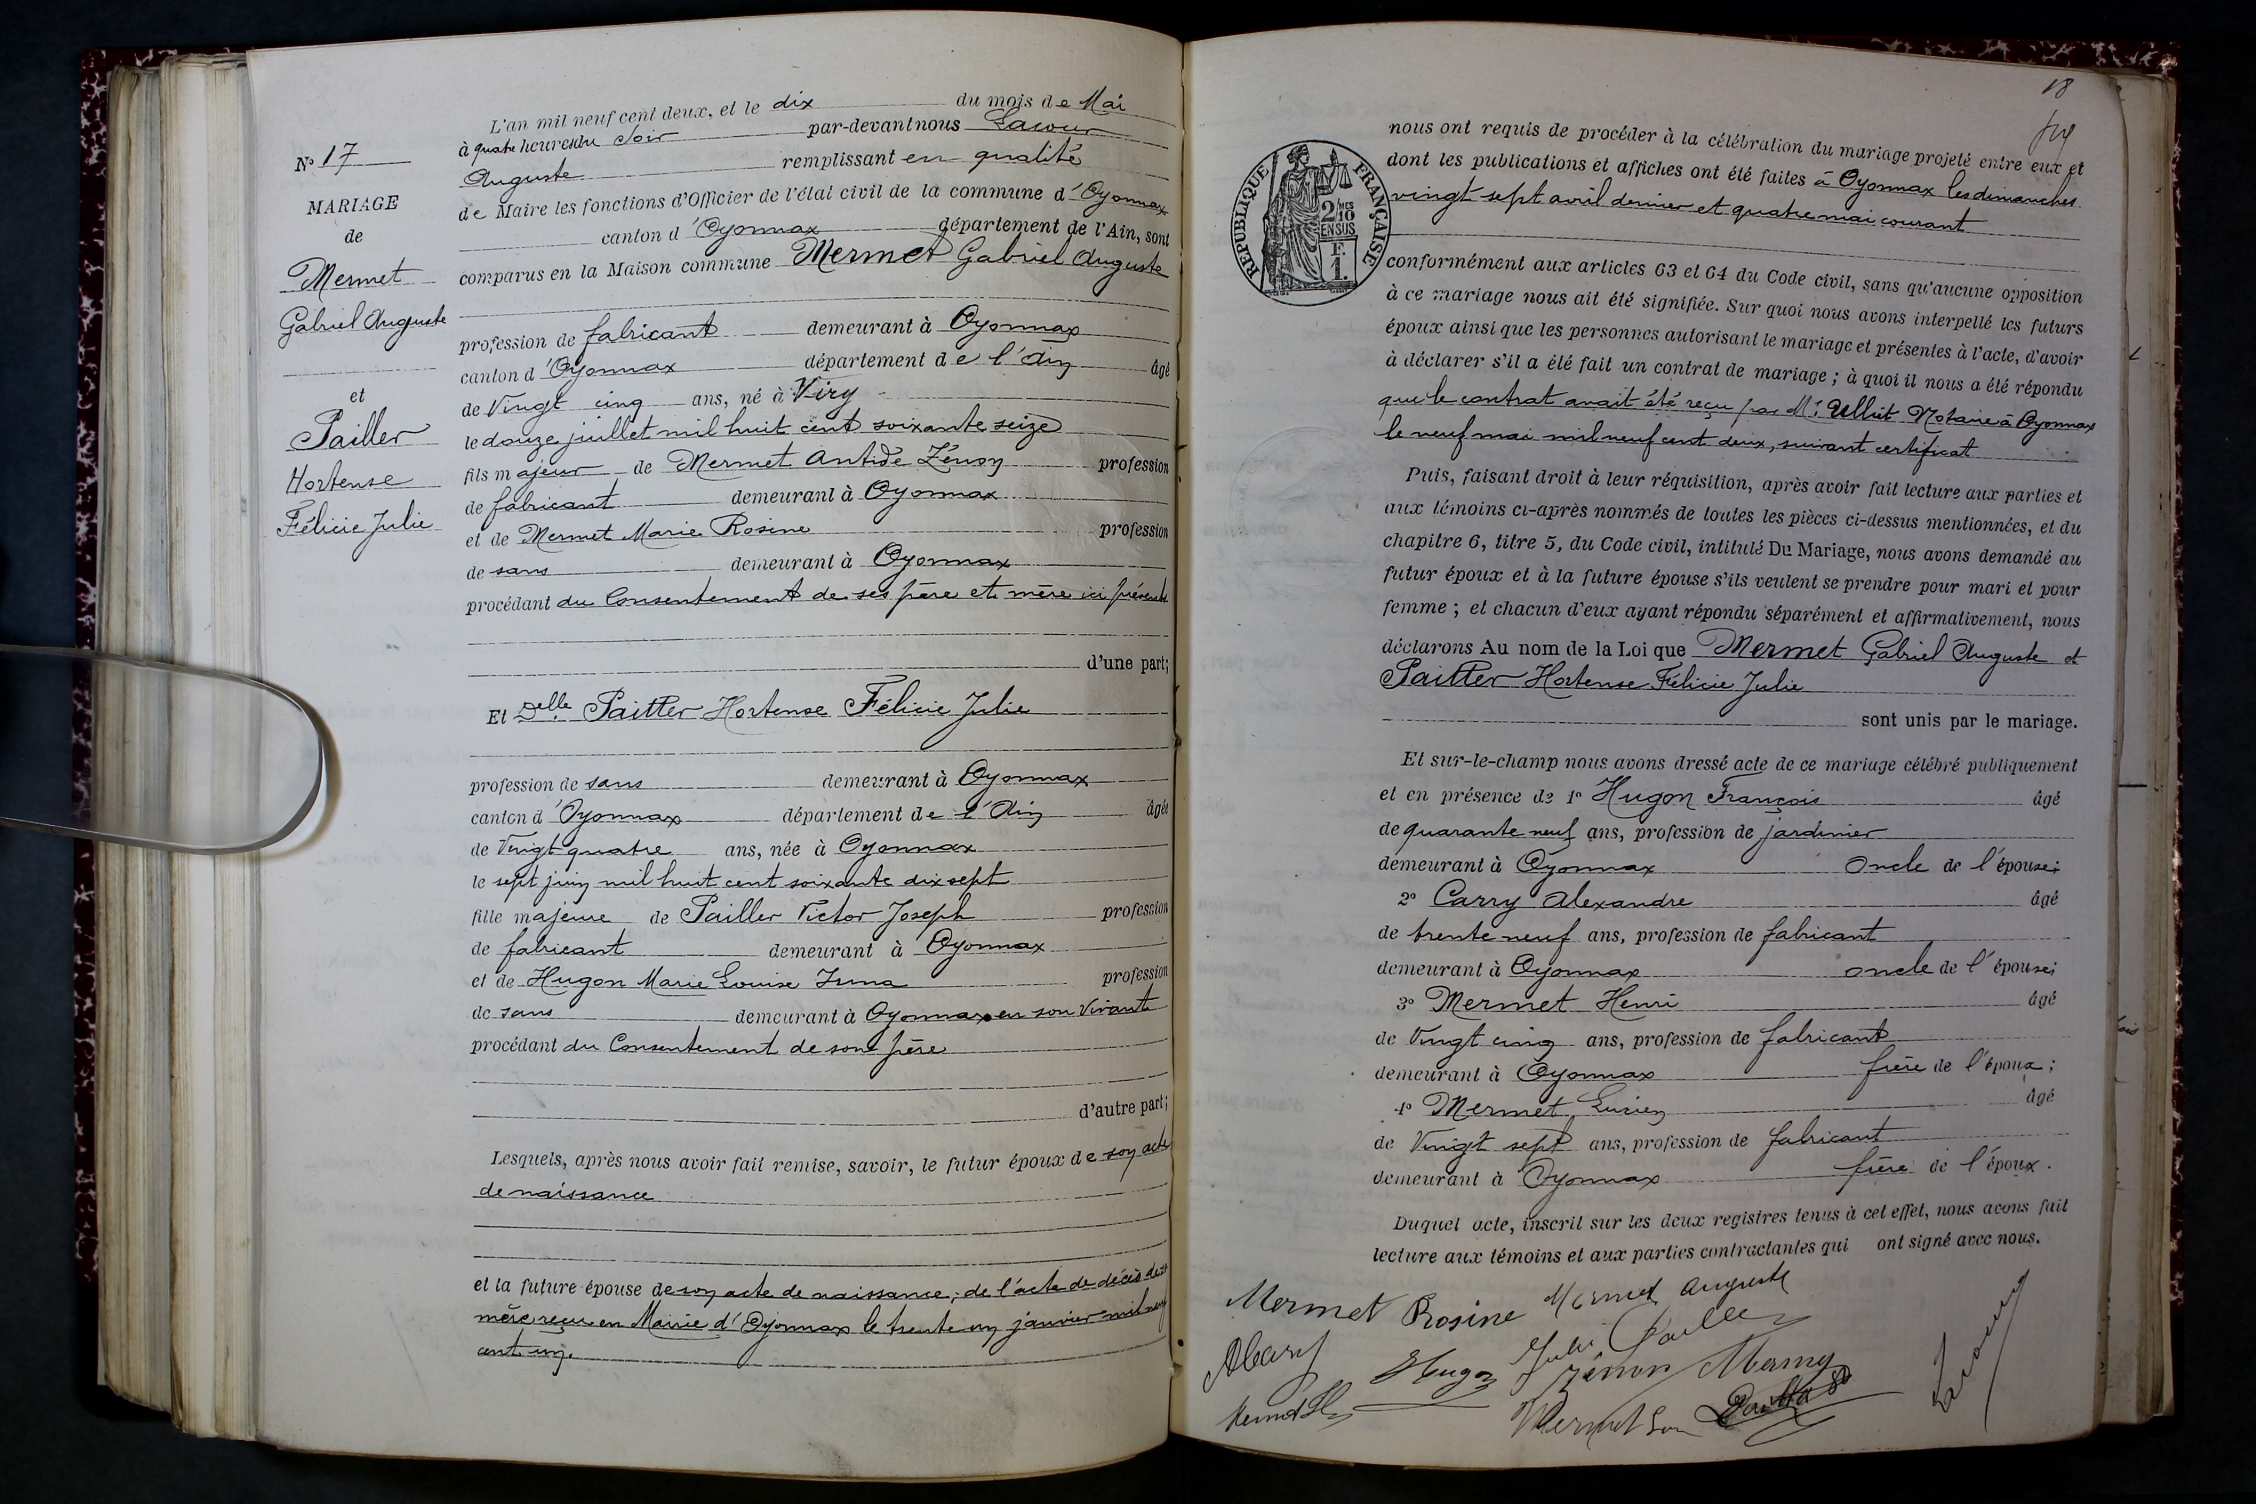 N° 17
MARIAGE
de
Mermet
Gabriel Auguste
et
Pailler
Hortense
Félicie Julie
L'an mil neuf cent deux, et le dix du mois de Mai
à quatre heures du Soir par-devant nous Lacour
Auguste remplissant en qualité
de Maire les fonctions d'Officier de l'état civil de la commune d'Oyonnax
canton d'Oyonnax département de l'Ain, sont
comparus en la Maison commune Mermet Gabriel Auguste
profession de fabricant demeurant à Oyonnax
canton d'Oyonnax département de l'Ain âgé
de Vingt cinq ans, né à Viry
le douze juillet mil huit cent soixante seize
fils majeur de Mermet Antide Zénon profession
de fabricant demeurant à Oyonnax
et de Mermet Marie Rosine profession
de sans demeurant à Oyonnax
procédant du Consentement de ses père et mère ici présents
d'une part;
Et Delle Paitter Hortense Félicie Julie
profession de sans demeurant à Oyonnax
canton d'Oyonnax département de l'Ain âgée
de Vingt quatre ans, née à Oyonnax
le sept juin mil huit cent soixante dix sept
fille majeure de Pailler Victor Joseph profession
de fabricant demeurant à Oyonnax
et de Hugon Marie Louise Irma profession
de sans demeurant à Oyonnax en son Vivant
procédant du Consentement de son père
d'autre part;
Lesquels, après nous avoir fait remise, savoir, le futur époux de son acte
de naissance
et la future épouse de son acte de naissance; de l'acte de décès de sa
mère reçu en Mairie d'Oyonnax le trente un janvier mil neuf
cent un.
18
REPUBLIQUE FRANÇAISE
2/10 EN SUS
F. 1.
nous ont requis de procéder à la célébration du mariage projeté entre eux et
dont les publications et affiches ont été faites à Oyonnax les dimanches
vingt sept avril dernier et quatre mai courant
conformément aux articles 63 et 64 du Code civil, sans qu'aucune opposition
à ce mariage nous ait été signifiée. Sur quoi nous avons interpellé les futurs
époux ainsi que les personnes autorisant le mariage et présentes à l'acte, d'avoir
à déclarer s'il a été fait un contrat de mariage; à quoi il nous a été répondu
que le contrat avait été reçu par Me Notaire à Oyonnax
le neuf mai mil neuf cent deux, suivant certificat
Puis, faisant droit à leur réquisition, après avoir fait lecture aux parties et
aux témoins ci-après nommés de toutes les pièces ci-dessus mentionnées, et du
chapitre 6, titre 5, du Code civil, intitulé Du Mariage, nous avons demandé au
futur époux et à la future épouse s'ils veulent se prendre pour mari et pour
femme; et chacun d'eux ayant répondu séparément et affirmativement, nous
déclarons Au nom de la Loi que Mermet Gabriel Auguste et
Paitter Hortense Félicie Julie
sont unis par le mariage.
Et sur-le-champ nous avons dressé acte de ce mariage célébré publiquement
et en présence de 1° Hugon François âgé
de quarante neuf ans, profession de jardinier
demeurant à Oyonnax Oncle de l'épouse;
2° Carry Alexandre âgé
de trente neuf ans, profession de fabricant
demeurant à Oyonnax oncle de l'épouse;
3° Mermet Henri âgé
de Vingt cinq ans, profession de fabricant
demeurant à Oyonnax frère de l'époux;
4° Mermet Lucien âgé
de Vingt sept ans, profession de fabricant
demeurant à Oyonnax frère de l'époux.
Duquel acte, inscrit sur les deux registres tenus à cet effet, nous avons fait
lecture aux témoins et aux parties contractantes qui ont signé avec nous.
Mermet Rosine Mermet Auguste
Julie Pailler
ACarry Hugon Zénon Mermet
Mermet
Lacour